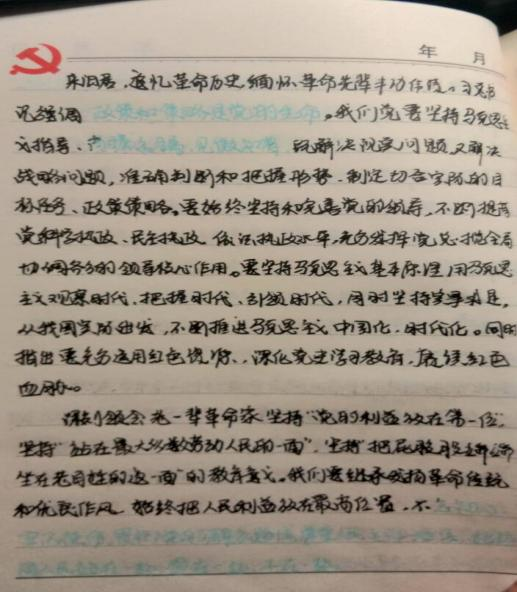 年 月
来旧居,追忆革命历史,缅怀革命先辈丰功伟绩。习总书
记强调 政策和策略是党的生命。我们党要坚持马克思主
义指导、高瞻远瞩、见微知著 既解决现实问题,又解决
战略问题,准确判断和把握形势,制定切合实际的目
标任务、政策策略。要始终坚持和完善党的领导,不断提高
党科学执政、民主执政、依法执政水平,充分发挥党总揽全局
协调各方的领导核心作用。要坚持马克思主义基本原理,用马克思
主义观察时代、把握时代、引领时代,同时坚持实事求是,
从我国实际出发,不断推进马克思主义中国化、时代化。同时
指出要充分运用红色资源,深化党史学习教育,赓续红色
血脉。
深刻领会老一辈革命家坚持“党的利益放在第一位”
坚持“站在最大多数劳动人民的一面”,坚持“把屁股端端
坐在老百姓的这一面”的教育意义。我们要继承发扬革命传统
和优良作风 始终把人民利益放在最高位置,不